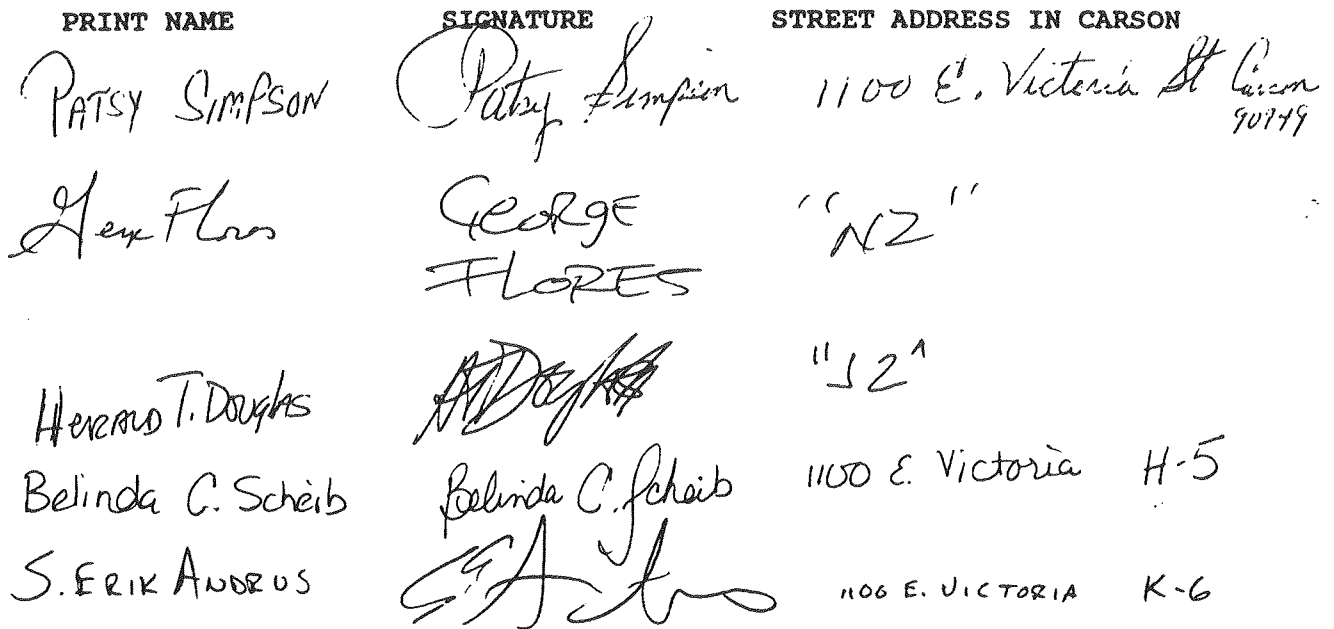 PRINT NAME SIGNATURE STREET ADDRESS IN CARSON
PATSY SIMPSON Patsy Simpson 1100 E. Victoria St Carson
Flores GEORGE "N2"
FLORES
HERALD T. DOUGLAS "J2"
Belinda C. Scheib Belinda C. Scheib 1100 E. Victoria H-5
S. ERIK ANDRUS 1100 E. VICTORIA K-6